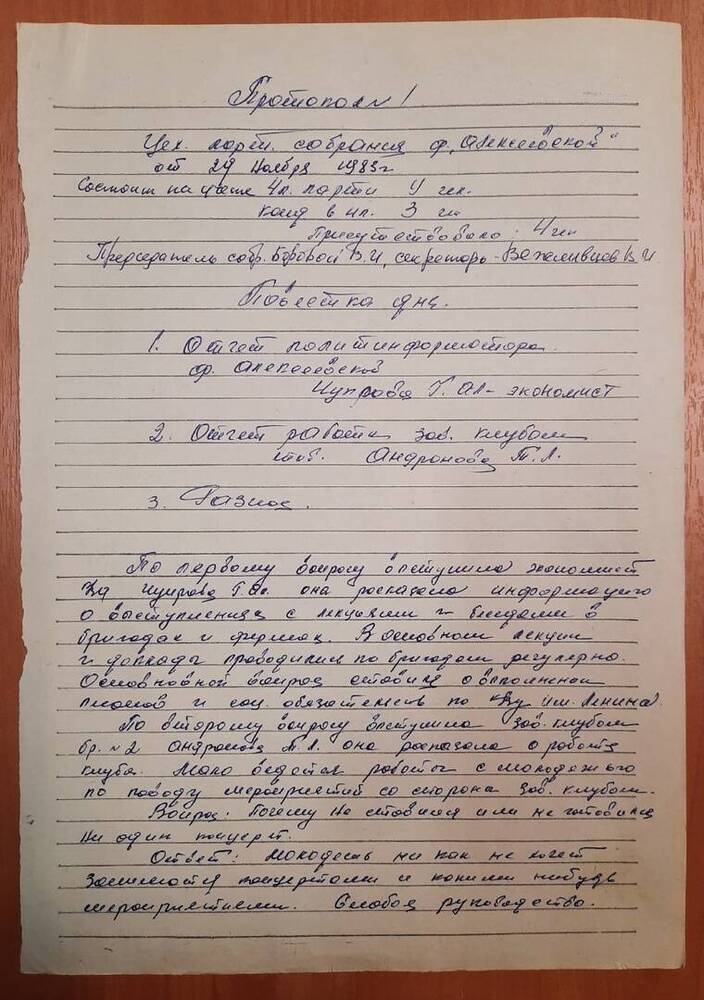 Протокол № 1
Цех. парт. собрания ф. "Алексеевской"
от 29 Ноября 1983г
Состоит на учете чл. партии 4 чел.
канд в чл. 3 чл
Присутствовало: 4 чел
Председатель собр. Боровой В.И, секретарь - В.И
Повестка дня.
1. Отчет политинформатора
ф. Алексеевской
Чупрова Г. Ал - экономист
2. Отчет работы зав. клубом
тов. Андронова Т.Л.
3. Разное.
По первому вопросу выступила экономист
Чупрова Г.Ал. она росказала информацию
о выступлениях с лекциями и беседами в
бригадах и фермах. В основном лекции
и доклады проводились по бригадам регулярно.
вопрос ставился о выполнении
планов и соц. обязательств по им. Ленина.
По второму вопросу выступила зав. клубом
бр. № 2 Андронова Т.Л. она росказала о работе
клуба. Мало ведется работы с молодежью
по поводу мероприятий со стороны зав. клубом.
Вопрос: Почему не ставился или не готовился
ни один концерт.
Ответ: Молодежь ни как не хочет
заниматся концертами и какими нибудь
мероприятиями. Слабое руководство.